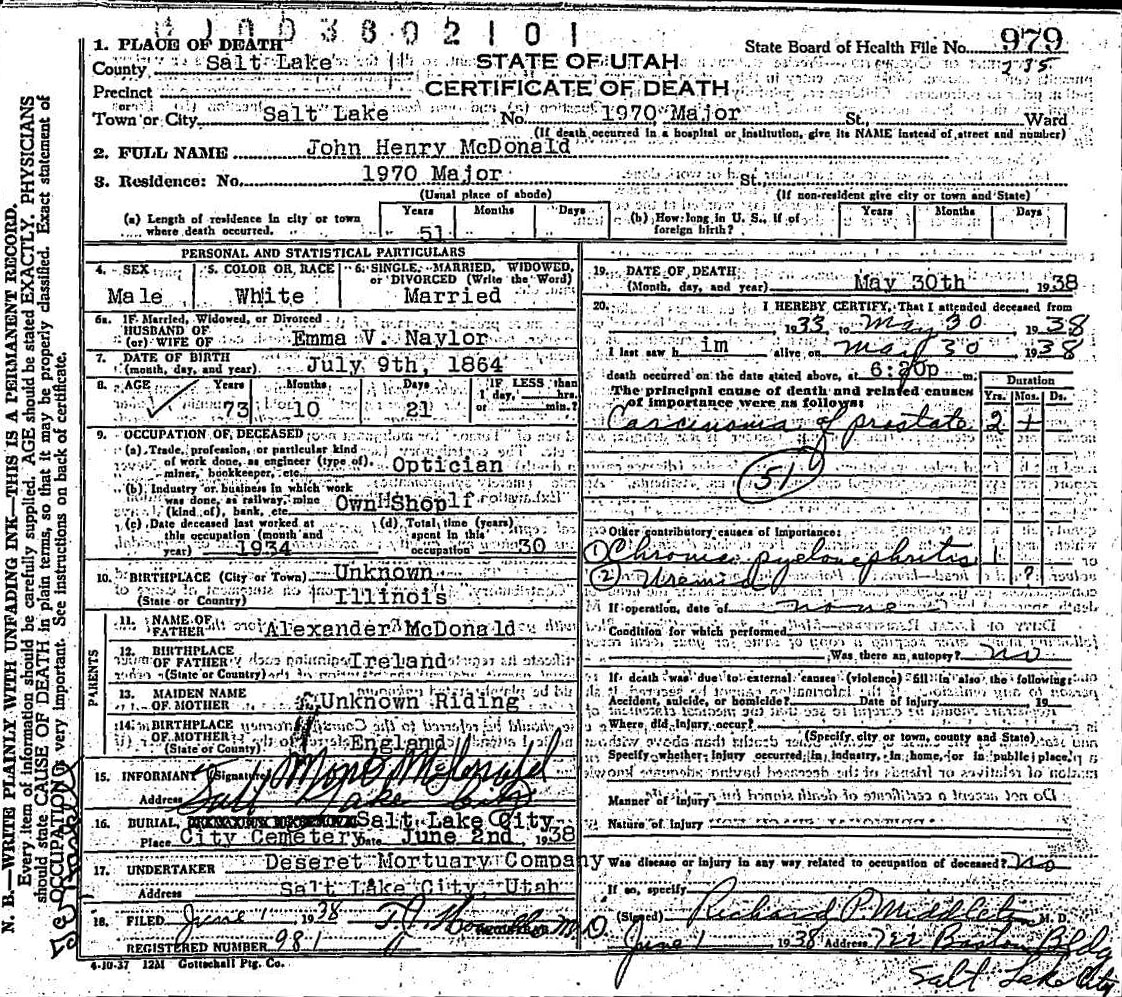 1. PLACE OF DEATH
State Board of Health File No. 979
235
County Salt Lake
STATE OF UTAH
CERTIFICATE OF DEATH
Precinct
Town or City Salt Lake No. 1970 Major St., Ward
(If death occurred in a hospital or institution, give its NAME instead of street and number)
2. FULL NAME John Henry McDonald
3. Residence: No. 1970 Major St.,
(Usual place of abode) (If non-resident give city or town and State)
(a) Length of residence in city or town where death occurred. Years 51 Months Days
(b) How long in U. S., if of foreign birth? Years Months Days
PERSONAL AND STATISTICAL PARTICULARS
4. SEX Male
5. COLOR OR RACE White
6. SINGLE, MARRIED, WIDOWED, or DIVORCED (Write the Word) Married
6a. If Married, Widowed, or Divorced
HUSBAND OF
(or) WIFE OF Emma V. Naylor
7. DATE OF BIRTH
(month, day, and year) July 9th, 1864
8. AGE Years 73 Months 10 Days 21 IF LESS than 1 day, hrs. or min.?
9. OCCUPATION OF DECEASED
(a) Trade, profession, or particular kind
of work done, as engineer (type of),
miner, bookkeeper, etc. Optician
(b) Industry or business in which work
was done, as railway, mine
(kind of), bank, etc. Own Shop
(c) Date deceased last worked at
this occupation (month and
year) 1934
(d) Total time (years)
spent in this
occupation 30
10. BIRTHPLACE (City or Town) Unknown
(State or Country) Illinois
PARENTS
11. NAME OF
FATHER Alexander McDonald
12. BIRTHPLACE
OF FATHER Ireland
(State or Country)
13. MAIDEN NAME
OF MOTHER Unknown Riding
14. BIRTHPLACE
OF MOTHER
(State or County) England
15. INFORMANT (Signature) Mone McDonald
Address Salt Lake City
16. BURIAL, Salt Lake City
Place City Cemetery Date June 2nd, 1938
17. UNDERTAKER Deseret Mortuary Company
Address Salt Lake City, Utah
18. FILED June 1 1938 M.D.
REGISTERED NUMBER 981
4-10-37 12M Gottschall Ptg. Co.
19. DATE OF DEATH
(Month, day, and year) May 30th 1938
20. I HEREBY CERTIFY, That I attended deceased from
1933 to May 30 1938
I last saw h im alive on May 30 1938
death occurred on the date stated above, at 6:20p m.
The principal cause of death and related causes
of importance were as follows:
Duration
Yrs. Mos. Ds.
Carcinoma of prostate 2 +
51
Other contributory causes of importance:
(1) Chronic pyelonephritis 1
(2) Uremia ?
If operation, date of none
Condition for which performed
Was there an autopsy? no
If death was due to external causes (violence) fill in also the following:
Accident, suicide, or homicide? Date of injury 19
Where did injury occur?
(Specify city or town, county and State)
Specify whether injury occurred in industry, in home, or in public place,
Manner of injury
Nature of injury
Was disease or injury in any way related to occupation of deceased? no
If so, specify
(Signed) Richard P. Middleton M. D.
June 1 1938 Address 722 Boston Bldg
Salt Lake City
N. B.—WRITE PLAINLY WITH UNFADING INK—THIS IS A PERMANENT RECORD.
Every item of information should be carefully supplied. AGE should be stated EXACTLY. PHYSICIANS
should state CAUSE OF DEATH in plain terms, so that it may be properly classified. Exact statement of
OCCUPATION is very important. See instructions on back of certificate.